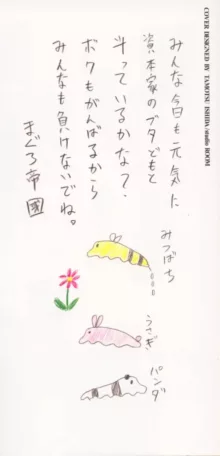 COVER DESIGNED BY TAMOTSU ISHIDA/studio ROOM
みんな今日も元気に
資本家のブタどもと
斗っているかな?、
ボクもがんばるから
みんなも負けないでね。
まぐろ帝國
みつばち
うさぎ
パンダ